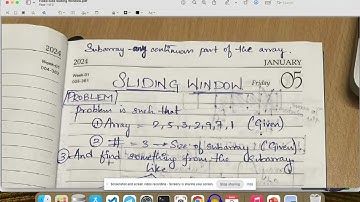 Subarray - any continuous part of the array.
2024
Week-01
004-361
2024
Week-01
005-361
JANUARY
SLIDING WINDOW
Friday
05
PROBLEM
Problem is such that
① Array = 2, 5, 3, 2, 9, 7, 1 (Given)
② # = 3 → Size of subarray (Given)
③ And find something from the subarray
like
Stop sharing